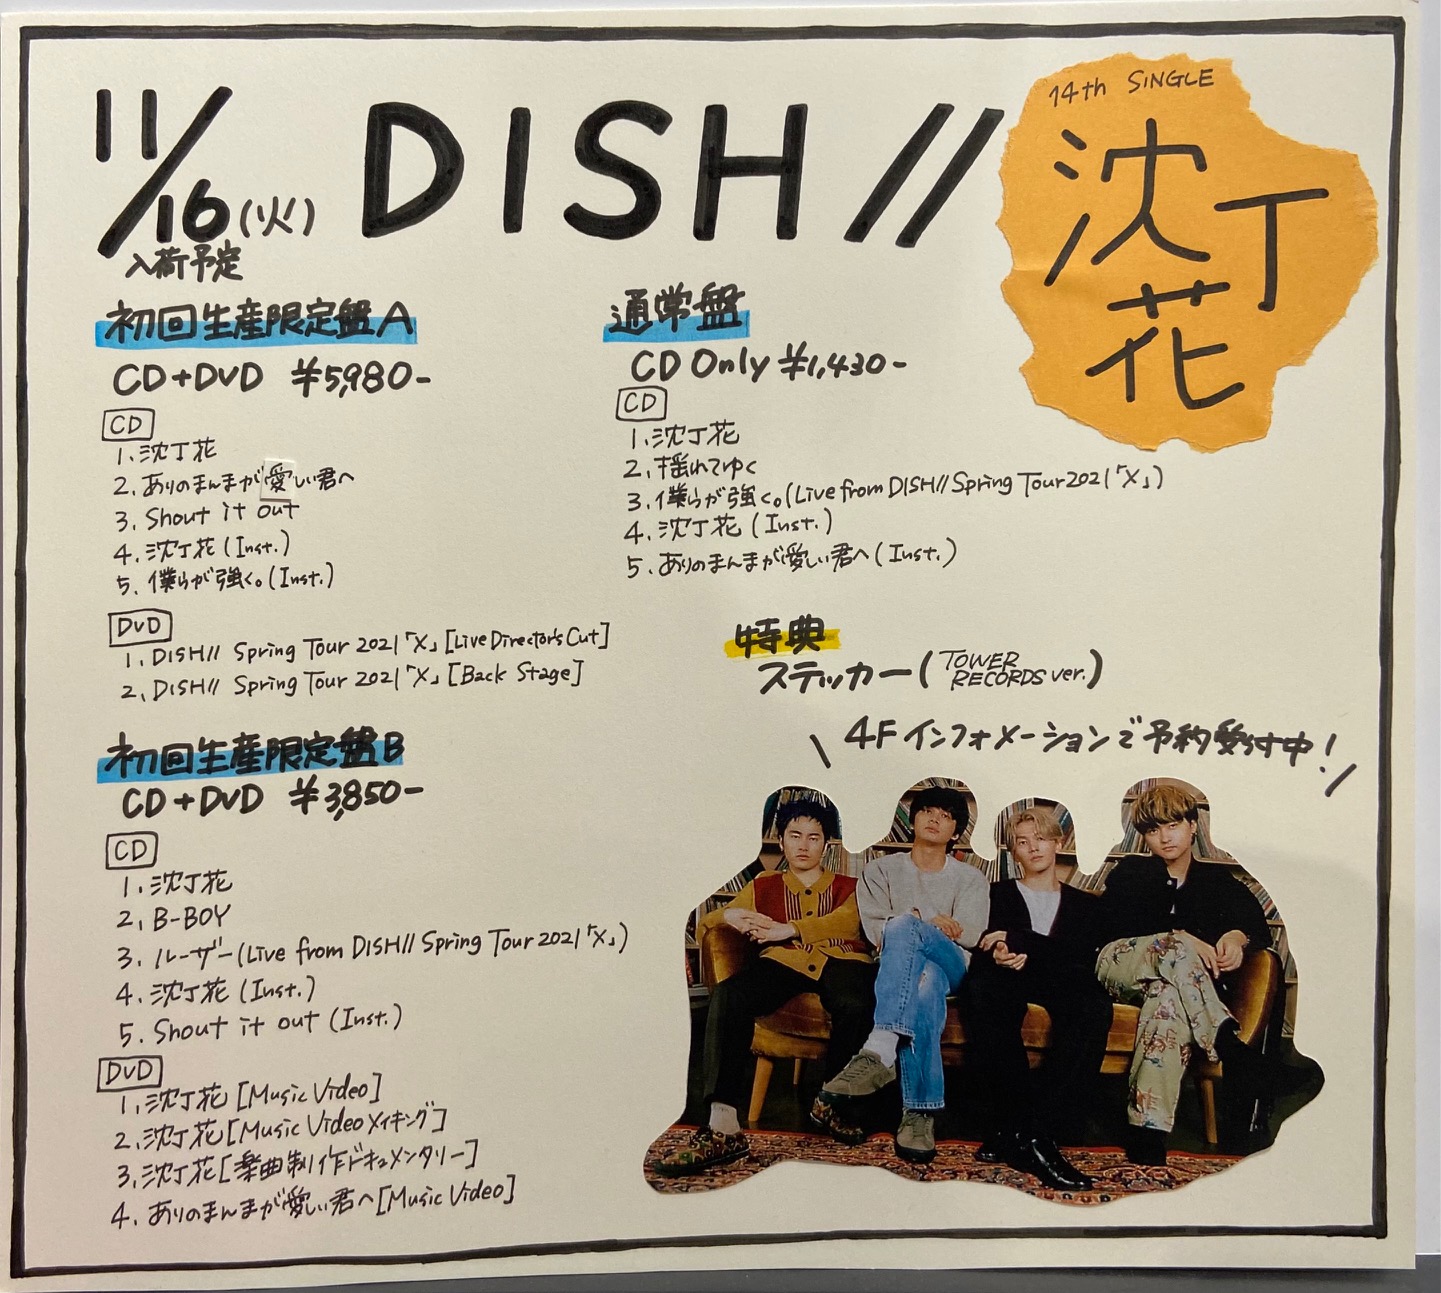 11/16(火)
入荷予定
DISH//
14th SINGLE
沈丁花
初回生産限定盤A
CD+DVD ¥5,980-
CD
1.沈丁花
2.ありのまんまが愛しい君へ
3.Shout it out
4.沈丁花(Inst.)
5.僕らが強く。(Inst.)
DVD
1.DISH// Spring Tour 2021「X」[Live Director's Cut]
2.DISH// Spring Tour 2021「X」[Back Stage]
初回生産限定盤B
CD+DVD ¥3,850-
CD
1.沈丁花
2.B-BOY
3.ルーザー(Live from DISH// Spring Tour 2021「X」)
4.沈丁花(Inst.)
5.Shout it out(Inst.)
DVD
1.沈丁花[Music Video]
2.沈丁花[Music Videoメイキング]
3.沈丁花[楽曲制作ドキュメンタリー]
4.ありのまんまが愛しい君へ[Music Video]
通常盤
CD Only ¥1,430-
CD
1.沈丁花
2.揺れてゆく
3.僕らが強く。(Live from DISH// Spring Tour 2021「X」)
4.沈丁花(Inst.)
5.ありのまんまが愛しい君へ(Inst.)
特典
ステッカー(TOWER RECORDS ver.)
\ 4Fインフォメーションで予約受付中! /